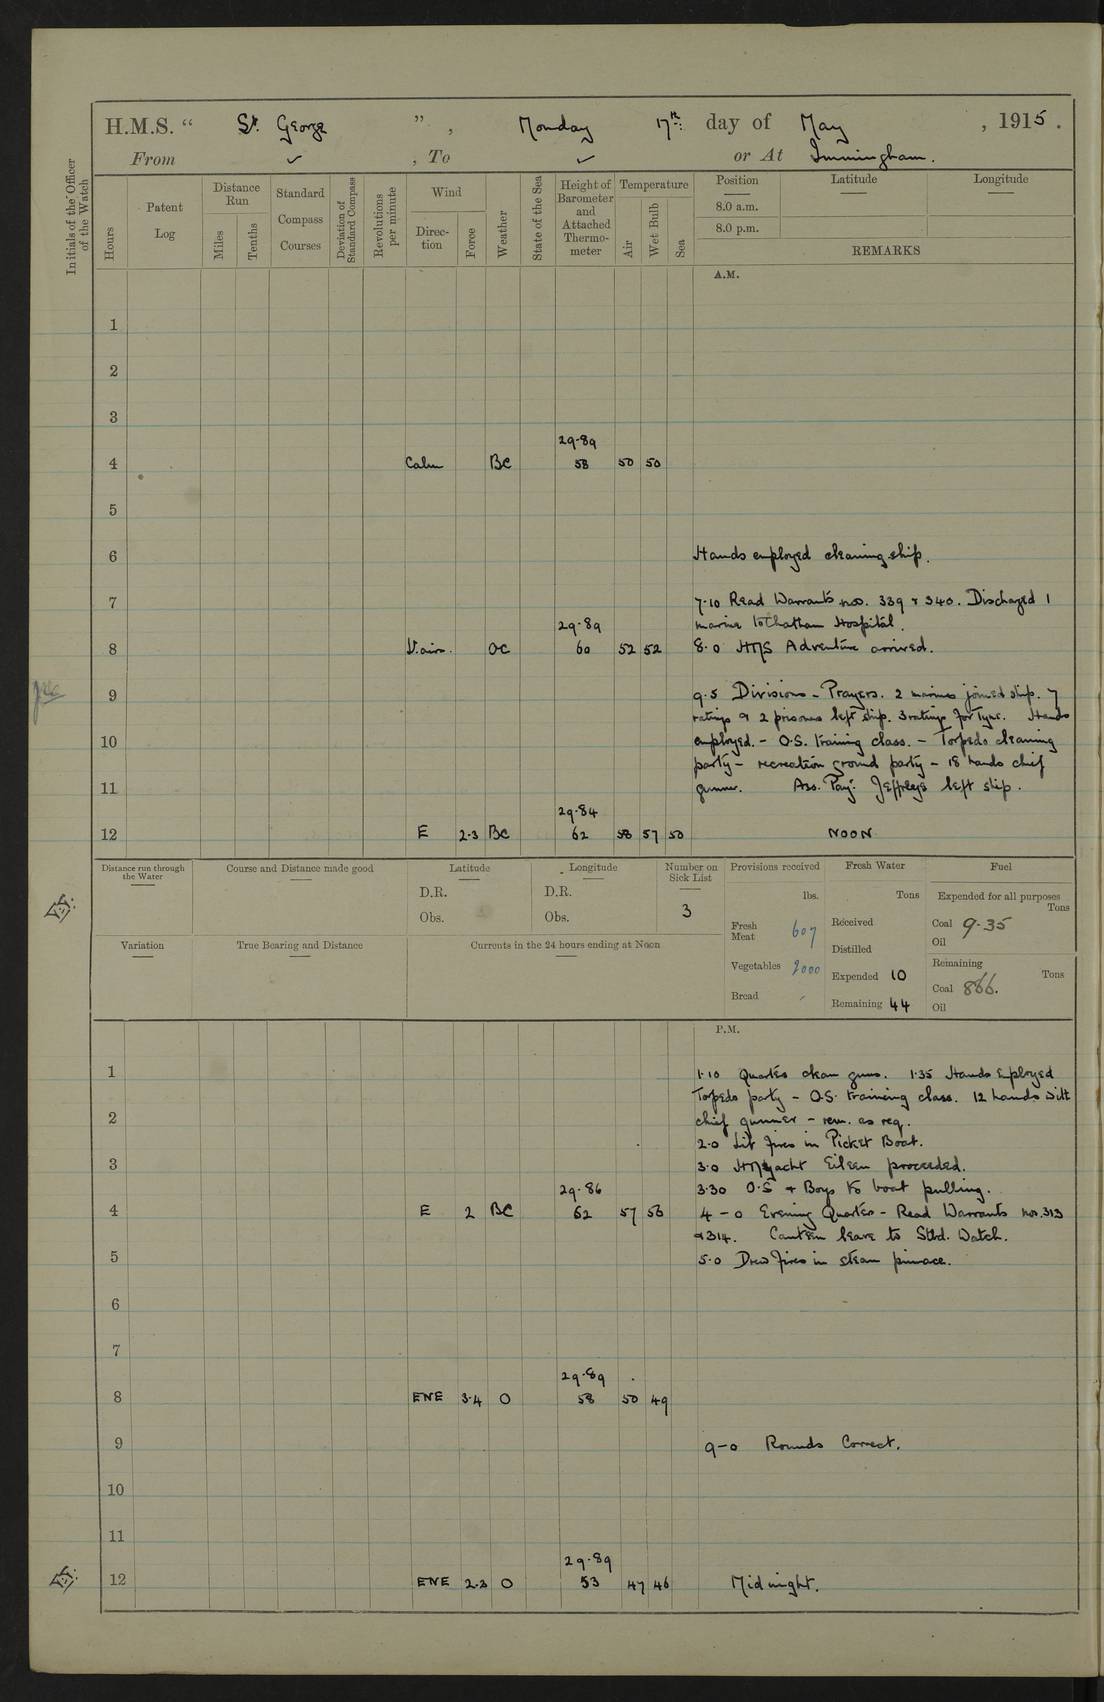 H.M.S. “ St. George ” , Monday 17th day of May , 1915 .
From ✓ , To ✓ or At Immingham.
Initials of the Officer of the Watch
Hours
Patent Log
Distance Run
Miles
Tenths
Standard Compass Courses
Deviation of Standard Compass
Revolutions per minute
Wind
Direc- tion
Force
Weather
State of the Sea
Height of Barometer and Attached Thermo- meter
Temperature
Air
Wet Bulb
Sea
Position
8.0 a.m.
8.0 p.m.
Latitude
Longitude
REMARKS
A.M.
1
2
3
29.89
4 Calm BC 58 50 50
5
6 Hands employed cleaning ship.
7 7.10 Read Warrants nos. 339 & 340. Discharged 1
29.89 marine to Chatham Hospital.
8 V.airs. OC 60 52 52 8.0 HMS Adventure arrived.
9 9.5 Divisions - Prayers. 2 marines joined ship. 7
ratings & 2 prisoners left ship. 3 ratings for Tyne. Hands
10 employed. - O.S. training class. - Torpedo cleaning
party - recreation ground party - 18 hands chief
11 gunner. Ass. Pay: Jeffreys left ship.
29.84
12 E 2.3 BC 62 58 57 50 NOON
Distance run through the Water
Course and Distance made good
Latitude
D.R.
Obs.
Longitude
D.R.
Obs.
Number on Sick List
3
Provisions received
lbs.
Fresh Meat 607
Vegetables 2000
Bread
Fresh Water
Tons
Received
Distilled
Expended 10
Remaining 44
Fuel
Expended for all purposes
Tons
Coal 9.35
Oil
Remaining
Tons
Coal 866.
Oil
Variation
True Bearing and Distance
Currents in the 24 hours ending at Noon
P.M.
1 1.10 Quarters clean guns. 1.35 Hands Employed
Torpedo party - O.S. training class. 12 hands with
2 chief gunner - rem. as req.
2.0 Lit fires in Picket Boat.
3 3.0 HM yacht Eileen proceeded.
29.86 3.30 O.S & Boys to boat pulling.
4 E 2 BC 62 57 56 4-0 Evening Quarters - Read Warrants nos. 313
& 314. Canteen leave to Stbd. Watch.
5 5.0 Drew fires in steam pinnace.
6
7
29.89
8 ENE 3.4 O 58 50 49
9 9-0 Rounds Correct.
10
11
29.89
12 ENE 2.3 O 53 47 46 Midnight.